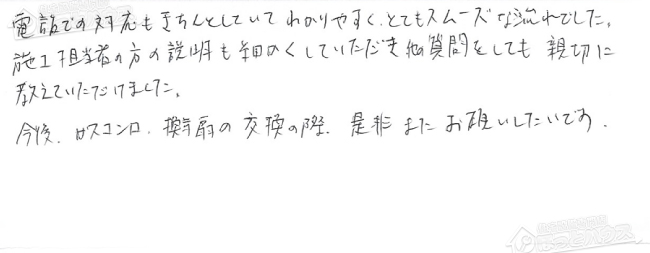 電話での対応もきちんとしていてわかりやすく、とてもスムーズな流れでした。
施工担当者の方の説明も細かくしていただき他質問をしても親切に
教えていただけました。
今後、ガスコンロ、換気扇の交換の際、是非またお願いしたいです。